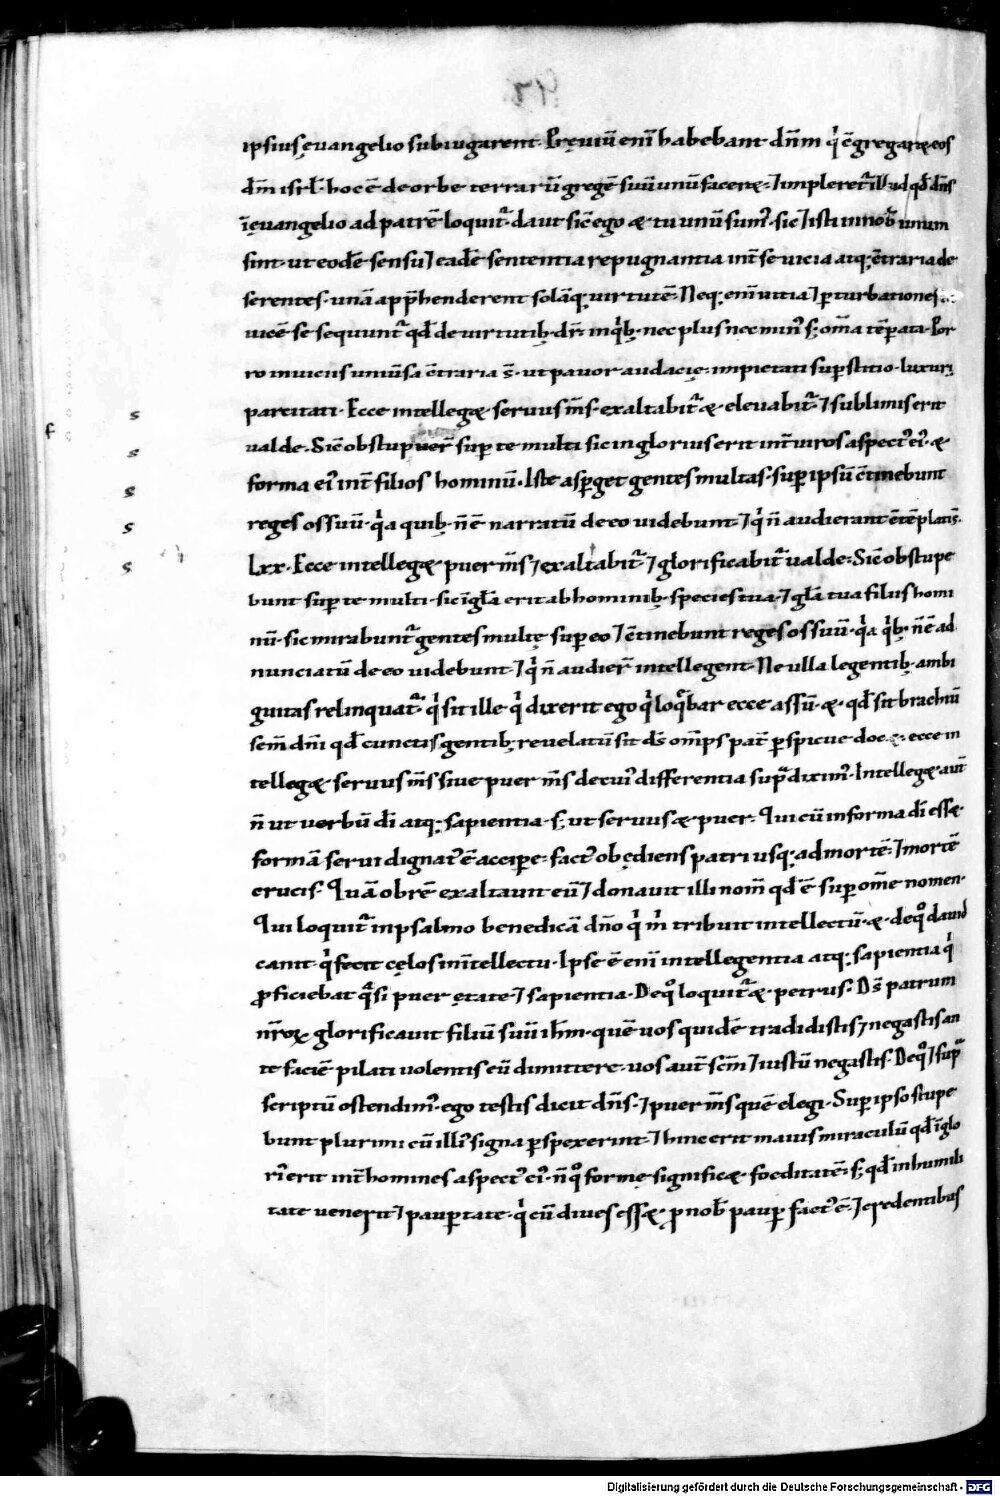 ipsius euangelio subiugarent. Pręuiũ enĩ habebant dñm q̓ cͦgregaret eos
dm̃ isrl̃. hoc ẽ de orbe terrarũ gregẽ suũ unũ faceret. ⁊ impleret̃ illud qd̃ dñs
ĩ euangelio ad patrẽ loquit̃. da ut sic̃ ego & tu unũ sum᷒. sic ⁊ isti in nob̃ unum
sint. ut eodẽ sensu ⁊ eadẽ sententia repugnantia int̃ se uicia atq; c̃traria de
serentes. unã app̃henderent solãq; uirtutẽ. Neq; enĩ uitia ⁊ ꝑturbationes
uicẽ se sequunt̃ qd̃ de uirtutib; dr̃. in q̓b; nec plus nec min᷒ s; om̃a tẽꝑata. Por
ro in uiciis uniũsa c̃traria s̃. ut pauor audacię. impietati suꝑstitio. luxurię
parcitati. Ecce intelleget seruus m̃s. exaltabit̃ & eleuabit̃. ⁊ sublimis erit
ualde. Sic̃ obstupuer̃ suꝑ te multi sic inglorius erit int̃ uiros aspect᷒ ei᷒. &
forma ei᷒ int̃ filios hominũ. Iste asꝑget gentes multas. suꝑ ipsũ c̃tinebunt
reges os suũ. q̓a quib; ñ ẽ narratũ de eo uidebunt. ⁊ q̓ ñ audierant c̃tẽplati s̃.
Lxx. Ecce intelleget puer m̃s ⁊ exaltabit̃. ⁊ glorificabit̃ ualde. Sic̃ obstupe
bunt suꝑ te multi. sic ĩgl̃a erit ab hominib; species tua. ⁊ gl̃a tua filiis homi
nũ. sic mirabunt̃ gentes multę suꝑ eo ⁊ c̃tinebunt reges os suũ. q̓a q̓b; ñ ẽ ad
nunciatũ de eo uidebunt. ⁊ q̓ ñ audier̃ intellegent. Ne ulla legentib; ambi
guitas relinquat̃. q̓ sit ille q̓ dixerit ego q̓ loq̃bar ecce assũ. &. qd̃ sit brachiũ
sem̃ dñi qd̃ cunctis gentib; reuelatũ sit ds̃ om̃ps pat̃ ꝑspicue docet. ecce in
telleget seruus m̃s siue puer m̃s de cui᷒ differentia sup̃ dixim᷒. Intelleget aut̃
ñ ut uerbũ dĩ atq; sapientia. s; ut seruus & puer. Qui cũ in forma dĩ esset.
formã serui dignat᷒ ẽ acciꝑe. fact᷒ obędiens patri usq; ad mortẽ. ⁊ mortẽ
crucis. Quã ob rẽ exaltauit eũ ⁊ donauit illi nom̃ qd̃ ẽ suꝑ om̃e nomen.
Qui loquit̃ in psalmo benedicã dño q̓ m̓ tribuit intellectũ. &. de qͦ dauid
canit. q̓ fecit cęlos in ĩtellectu. Ipse ẽ enĩ intellegentia atq; sapientia q̓
ꝓficiebat q̃si puer ętate. ⁊ sapientia. De qͦ loquit̃ & petrus. Ds̃ patrum
nr̃oꝝ glorificauit filiũ suũ ihm̃. quẽ uos quidẽ tradidistis ⁊ negastis an
te faciẽ pilati uolentis eũ dimittere. uos aut̃ scm̃ ⁊ iustũ negastis. De qͦ ⁊ sup̃
scriptũ ostendim᷒. ego testis dicit dñs. ⁊ puer m̃s quẽ elegi. Suꝑ ipso stupe
bunt plurimi cũ illi᷒ signa ꝑspexerint. ⁊ hinc erit maius miraculũ qd̃ ĩglo
ri᷒ erit int̃ homines aspect᷒ ei᷒. ñ qͦ formę significet foeditatẽ. s; qd̃ in humili
tate uenerit ⁊ pauꝑtate. q̓ cũ diues esset ꝓ nob̃ pauꝑ fact᷒ ẽ. ⁊ credentibus
Digitalisierung gefördert durch die Deutsche Forschungsgemeinschaft - DFG